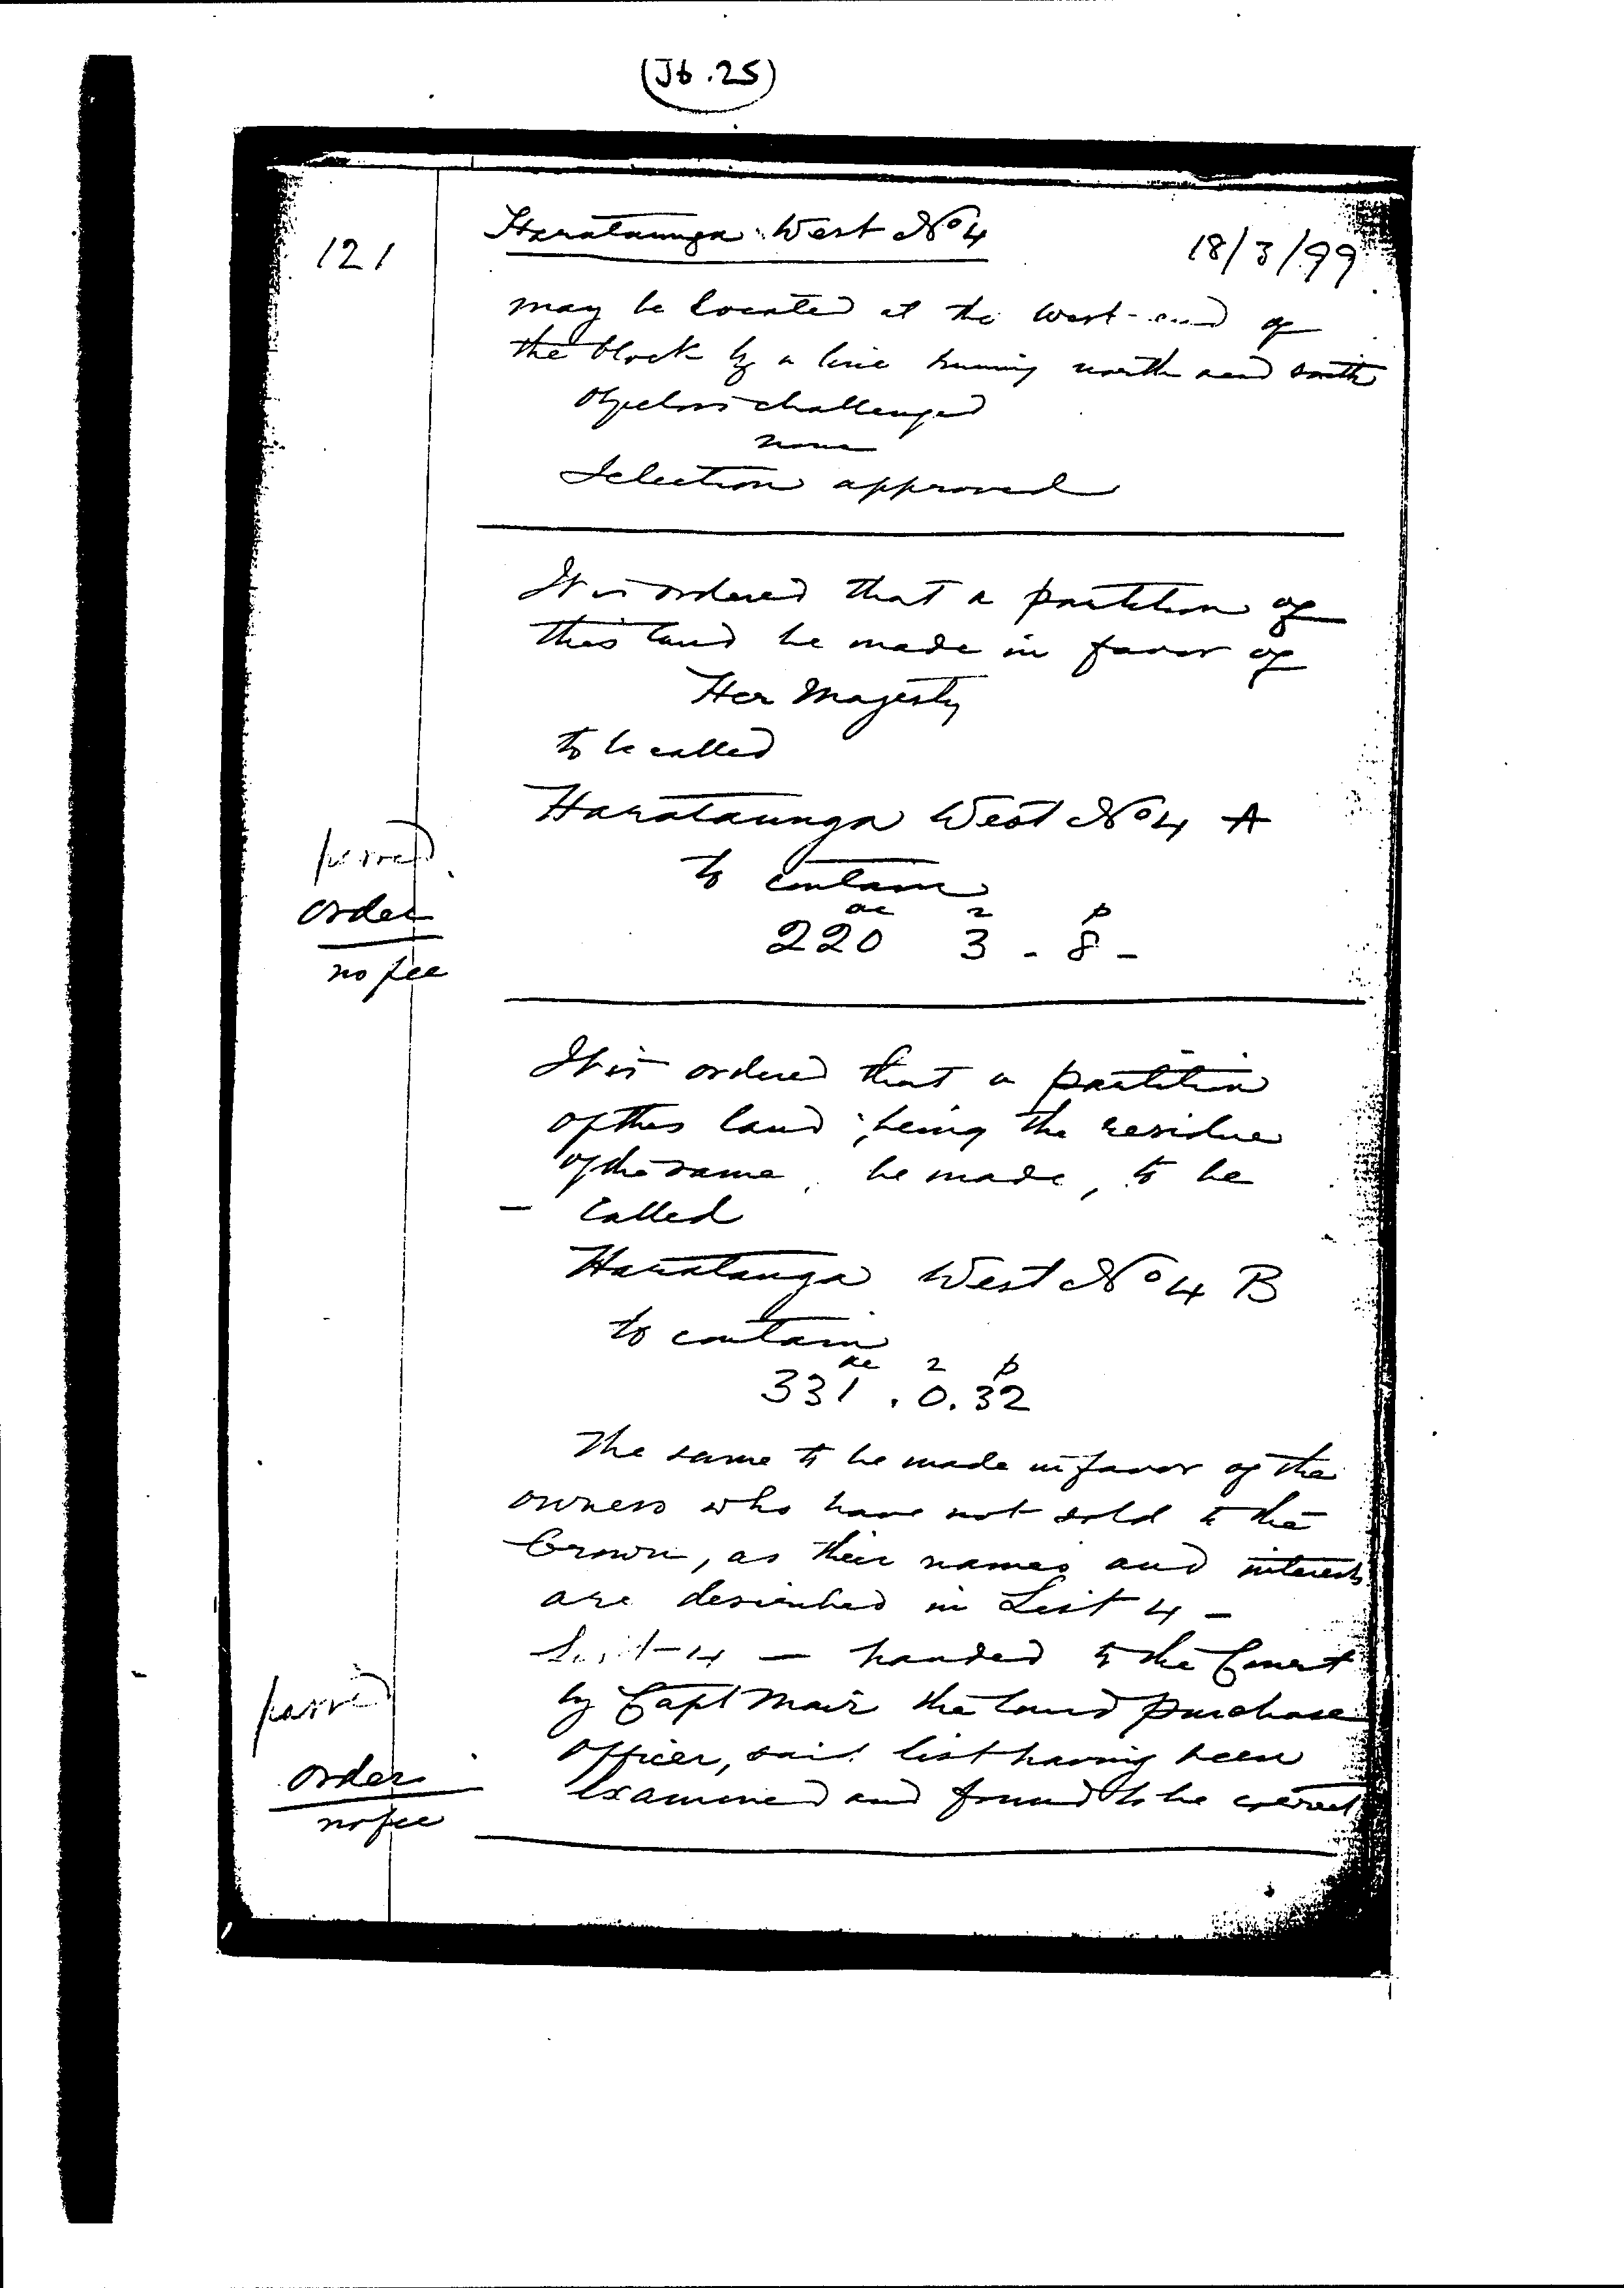 (Jb.25)
121
Harataunga West No 4
18/3/99
may be located at the West end of
the block by a line running north and south
Objectors challenged
none
Selection approved
It is ordered that a partition of
this land be made in favor of
Her Majesty
to be called
Harataunga West No 4 A
passed
order
no fee
to contain
ac r p
220 3 - 8 -
It is ordered that a partition
of this land, being the residue
of the same, be made, to be
- called
Harataunga West No 4 B
to contain
ac r p
331 . 0 . 32
The same to be made in favor of the
owners who have not sold to the
Crown, as their names and interests
are described in List 4 -
List 4 — handed to the Court
by Capt Mair the land purchase
officer, said list having been
examined and found to be correct
passed
order
no fee